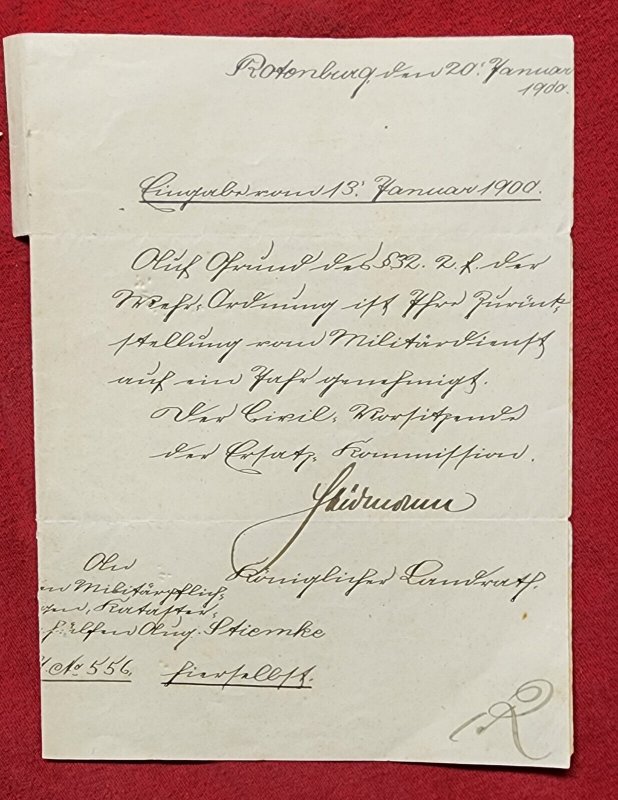 Rotenburg, den 20. Januar
1900.
Eingabe vom 13. Januar 1900.
Auf Grund des § 32. 2. f. der
Wehr-Ordnung ist Ihre Zurück-
stellung vom Militärdienst
auf ein Jahr genehmigt.
Der Civil-Vorsitzende
der Ersatz-Kommission.
Königlicher Landrath.
An
en Militärpflich-
gen, Kataster-
hülfen Aug. Stiemke
No 556. hierselbst.
R